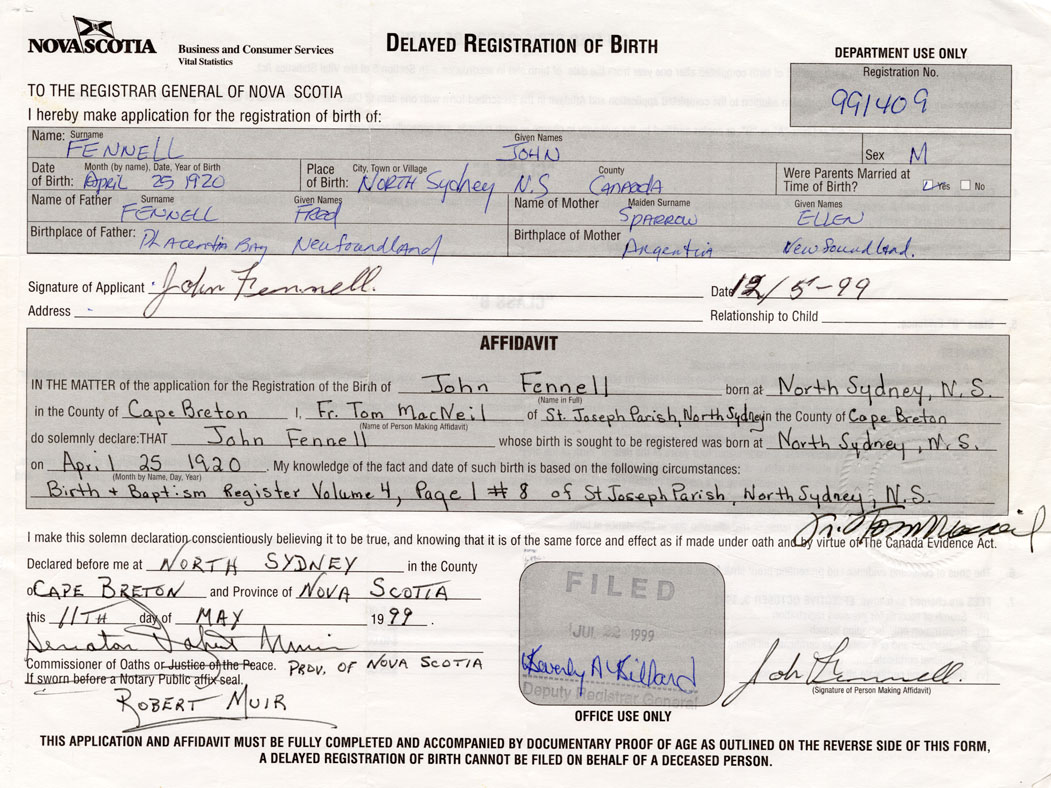 NOVA SCOTIA
Business and Consumer Services
Vital Statistics
DELAYED REGISTRATION OF BIRTH
DEPARTMENT USE ONLY
Registration No.
991409
TO THE REGISTRAR GENERAL OF NOVA SCOTIA
I hereby make application for the registration of birth of:
Name: Surname FENNELL Given Names JOHN Sex M
Date of Birth: Month (by name), Date, Year of Birth April 25 1920 Place of Birth: City, Town or Village NORTH Sydney N.S County CANADA Were Parents Married at Time of Birth? Yes No
Name of Father Surname FENNELL Given Names FRED Name of Mother Maiden Surname SPARROW Given Names ELLEN
Birthplace of Father: Placentia Bay Newfoundland Birthplace of Mother Argentia Newfoundland.
Signature of Applicant John Fennell. Date 12/5-99
Address Relationship to Child
AFFIDAVIT
IN THE MATTER of the application for the Registration of the Birth of John Fennell born at North Sydney, N.S.
(Name in Full)
in the County of Cape Breton I, Fr. Tom MacNeil of St. Joseph Parish, North Sydney in the County of Cape Breton
(Name of Person Making Affidavit)
do solemnly declare: THAT John Fennell whose birth is sought to be registered was born at North Sydney, N.S.
on April 25 1920. My knowledge of the fact and date of such birth is based on the following circumstances:
(Month by Name, Day, Year)
Birth + Baptism Register Volume 4, Page 1 # 8 of St Joseph Parish, North Sydney, N.S.
Fr. Tom MacNeil
I make this solemn declaration conscientiously believing it to be true, and knowing that it is of the same force and effect as if made under oath and by virtue of The Canada Evidence Act.
Declared before me at NORTH SYDNEY in the County
of CAPE BRETON and Province of NOVA SCOTIA
this 11TH day of MAY 1999.
Senator Robert Muir
Commissioner of Oaths or Justice of the Peace. PROV. OF NOVA SCOTIA
If sworn before a Notary Public affix seal.
ROBERT MUIR
FILED
JUL 22 1999
Beverly A Killard
Deputy Registrar General
OFFICE USE ONLY
John Fennell.
(Signature of Person Making Affidavit)
THIS APPLICATION AND AFFIDAVIT MUST BE FULLY COMPLETED AND ACCOMPANIED BY DOCUMENTARY PROOF OF AGE AS OUTLINED ON THE REVERSE SIDE OF THIS FORM,
A DELAYED REGISTRATION OF BIRTH CANNOT BE FILED ON BEHALF OF A DECEASED PERSON.